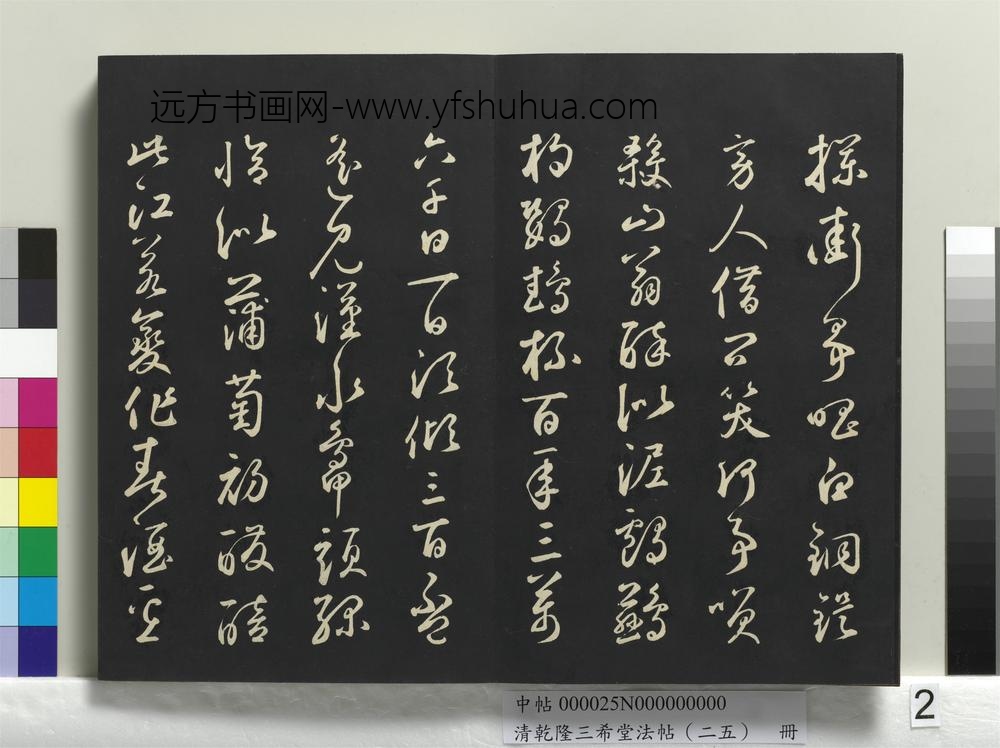 远方书画网-www.yfshuhua.com
攔街爭唱白銅鍉
旁人借問笑何事咲
殺山翁醉似泥鸕鷀
杓鸚鵡杯百年三萬
六千日一日須傾三百盃
遙見漢水鴨頭綠
恰似蒲萄初醱醅
此江若變作春酒
中帖 000025N000000000
清乾隆三希堂法帖（二五） 冊
2